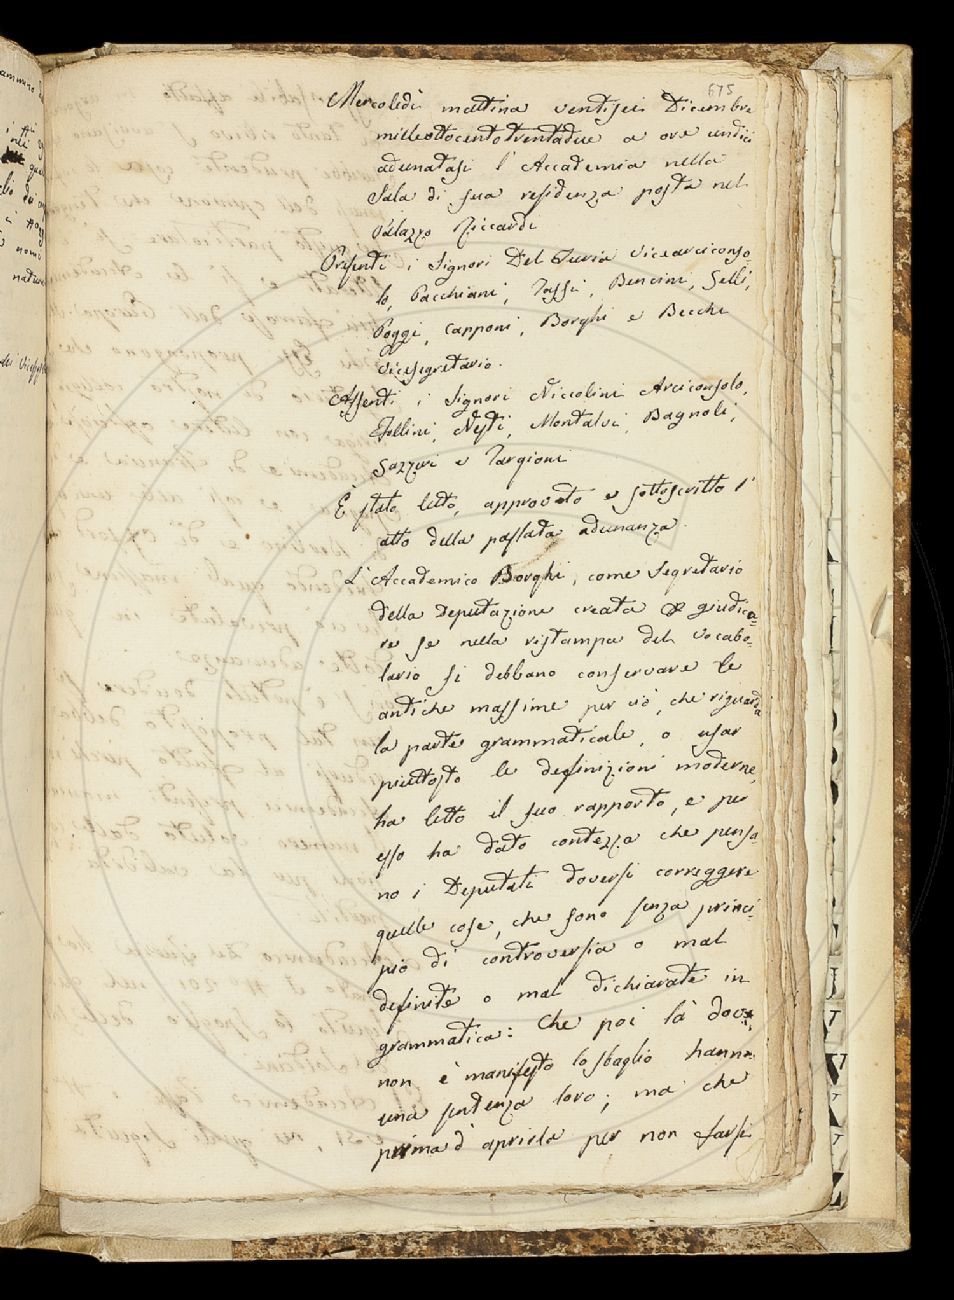 675
Mercoledì mattina ventisei Dicembre
milleottocentotrentadue a ore undici
adunatasi l'Accademia nella
Sala di sua residenza posta nel
Palazzo Riccardi
Presenti i Signori Del Furia Vicearciconso-
lo, Pacchiani, Tassi, Bencini, Selli,
Poggi, Capponi, Borghi e Becchi
Vicesegretario.
Assenti i Signori Niccolini Arciconsolo,
Follini, Nesti, Montalvi, Bagnoli,
Gazzeri e Targioni
È stato letto, approvato e sottoscritto l'
atto della passata adunanza.
L'Accademico Borghi, come Segretario
della Deputazione creata a giudica-
re se nella ristampa del Vocabo-
lario si debbano conservare le
antiche massime per ciò, che riguarda
la parte grammaticale, o usar
piuttosto le definizioni moderne,
ha letto il suo rapporto, e per
esso ha dato contezza che pensa-
no i Deputati doversi correggere
quelle cose, che sono senza princi-
pio di controversia o mal
definite o mal dichiarate in
grammatica: Che poi là dove
non è manifesto lo sbaglio hanno
una sentenza loro; ma che
prima d'aprirla per non farsi